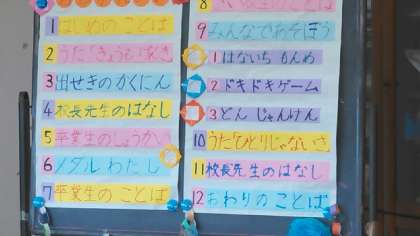 1 はじめのことば
2 うた「きょうも
3 出せきのかくにん
4 校長先生のはなし
5 卒業生のしょうかい
6 メダル わたし
7 卒業生の ことば
8
9 みんなであそぼう
1 はないち もんめ
2 ドキドキゲーム
3 どん じゃんけん
10 うた「ひとりじゃないさ
11 校長先生のはなし
12 おわりの ことば